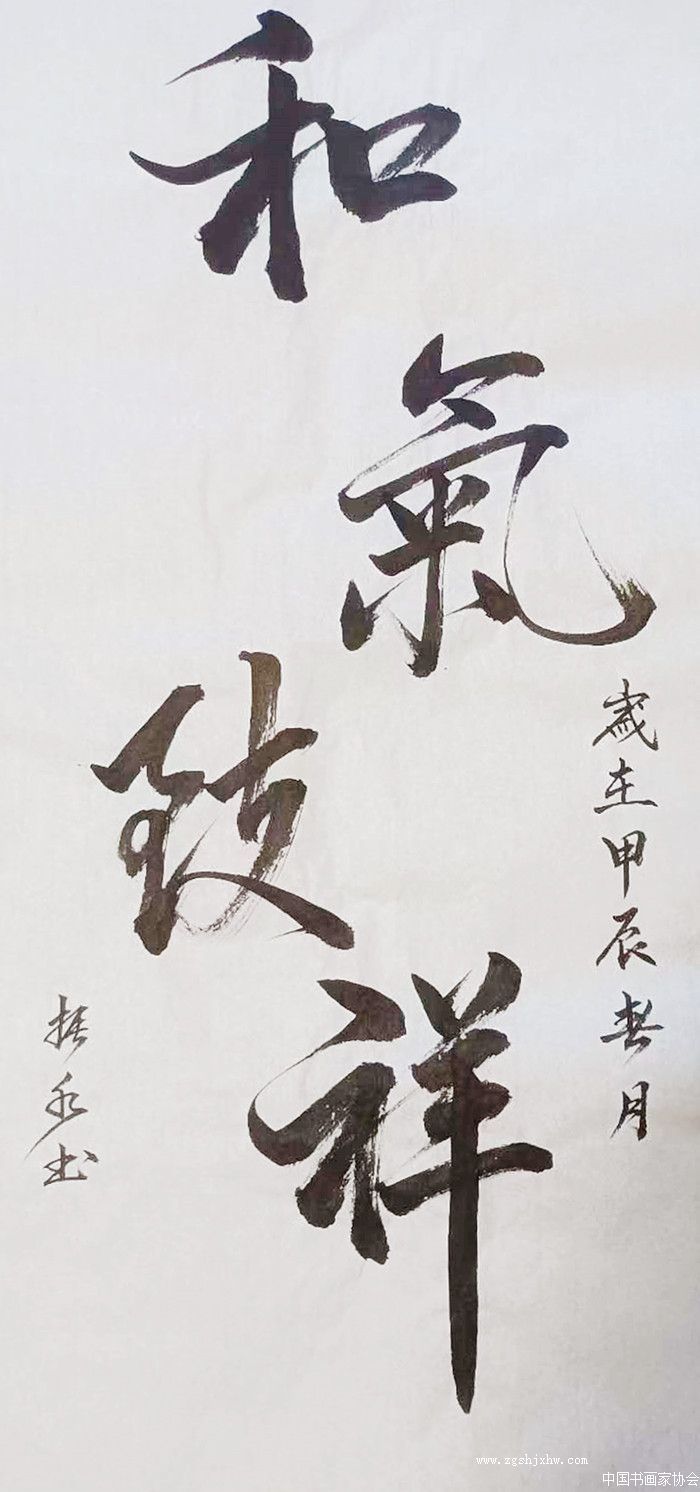 和氣致祥
歲在甲辰春月
振永书
www.zgshjxhw.com
中国书画家协会